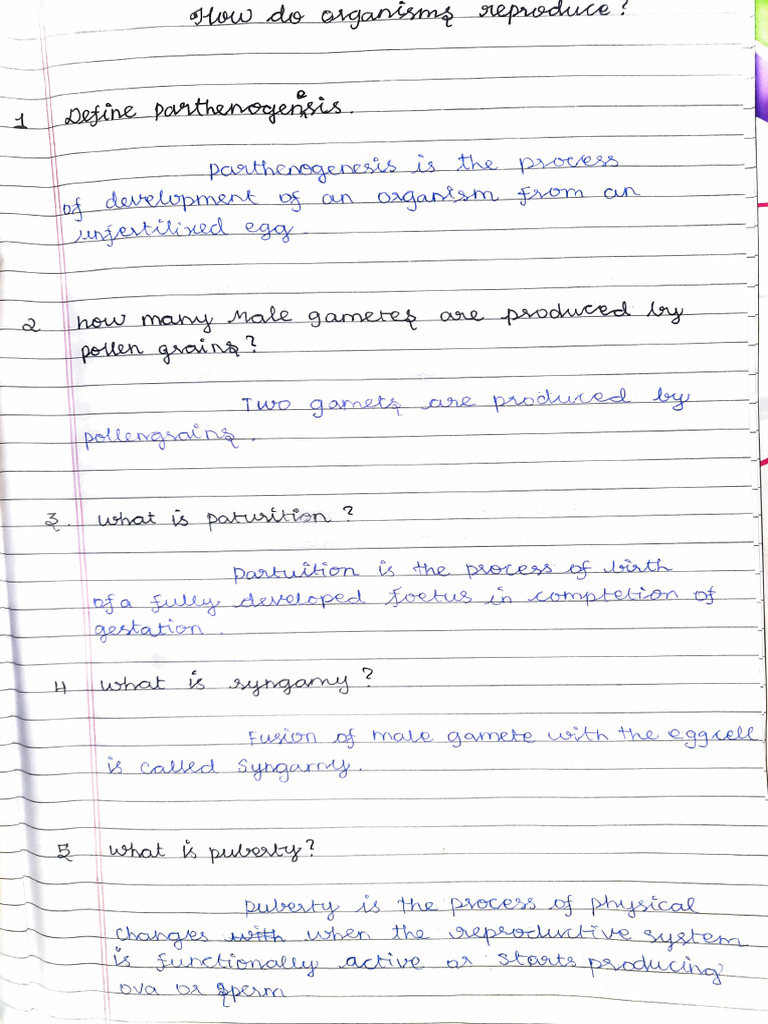 How do organisms reproduce?
1 Define parthenogenesis.
Parthenogenesis is the process
of development of an organism from an
unfertilized egg.
2 how many Male gametes are produced by
pollen grains?
Two gamets are produced by
pollengrains.
3. what is paturition?
Partuition is the process of birth
of a fully developed foetus in completion of
gestation.
4 what is syngamy?
Fusion of male gamete with the eggcell
is called Syngamy.
5 what is puberty?
puberty is the process of physical
changes with when the reproductive system
is functionally active or starts producing
ova or sperm